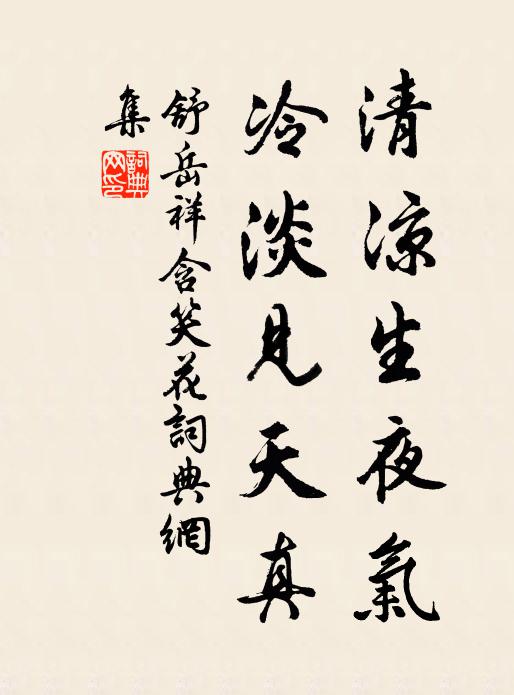 清凉生夜氣
冷淡見天真
舒岳祥含笑花詞典網
集
詞典
网印